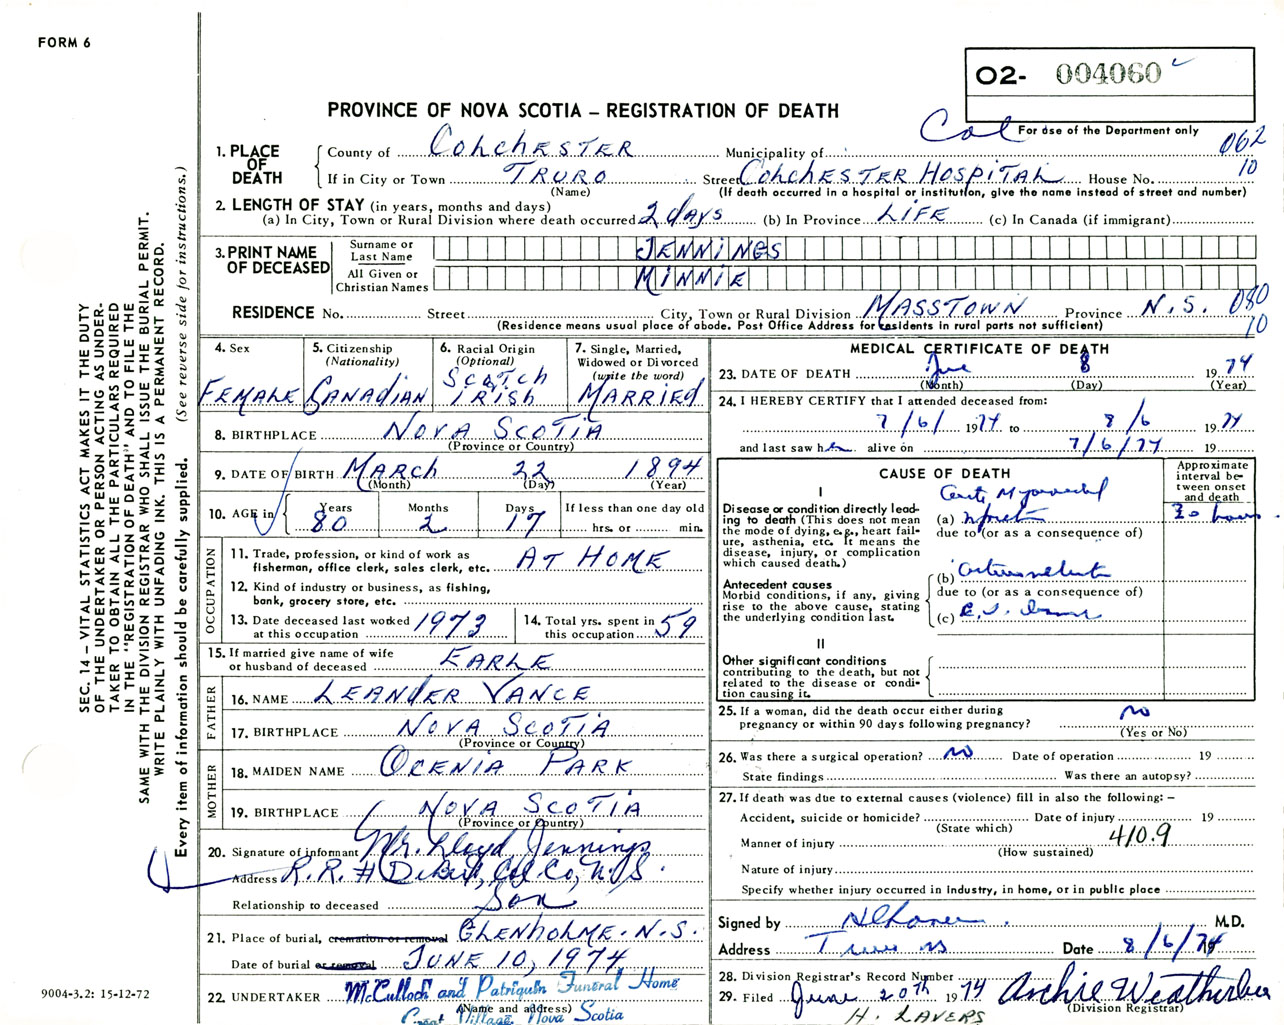 FORM 6
O2- 004060
PROVINCE OF NOVA SCOTIA – REGISTRATION OF DEATH
Col For use of the Department only
062
10
1. PLACE OF DEATH
County of COLCHESTER Municipality of
If in City or Town TRURO Street COLCHESTER HOSPITAL House No.
(Name) (If death occurred in a hospital or institution, give the name instead of street and number)
2. LENGTH OF STAY (in years, months and days)
(a) In City, Town or Rural Division where death occurred 2 days (b) In Province LIFE (c) In Canada (if immigrant)
3. PRINT NAME OF DECEASED
Surname or Last Name JENNINGS
All Given or Christian Names MINNIE
RESIDENCE No. Street City, Town or Rural Division MASSTOWN Province N.S. 080
10
(Residence means usual place of abode. Post Office Address for residents in rural parts not sufficient)
4. Sex FEMALE
5. Citizenship (Nationality) CANADIAN
6. Racial Origin (Optional) SCOTCH IRISH
7. Single, Married, Widowed or Divorced (write the word) MARRIED
8. BIRTHPLACE NOVA SCOTIA
(Province or Country)
9. DATE OF BIRTH MARCH 22 1894
(Month) (Day) (Year)
10. AGE in Years 80 Months 2 Days 17 If less than one day old hrs. or min.
OCCUPATION
11. Trade, profession, or kind of work as fisherman, office clerk, sales clerk, etc. AT HOME
12. Kind of industry or business, as fishing, bank, grocery store, etc.
13. Date deceased last worked at this occupation 1973
14. Total yrs. spent in this occupation 59
15. If married give name of wife or husband of deceased EARLE
FATHER
16. NAME LEANDER VANCE
17. BIRTHPLACE NOVA SCOTIA
(Province or Country)
MOTHER
18. MAIDEN NAME OCENIA PARK
19. BIRTHPLACE NOVA SCOTIA
(Province or Country)
20. Signature of informant Mr. Lloyd Jennings
Address R.R. # Debert, Col Co, N.S.
Relationship to deceased Son
21. Place of burial, cremation or removal GLENHOLME. N.S.
Date of burial or removal JUNE 10, 1974
22. UNDERTAKER McCulloch and Patriquin Funeral Home
(Name and address)
Great Village, Nova Scotia
MEDICAL CERTIFICATE OF DEATH
23. DATE OF DEATH June 8 1974
(Month) (Day) (Year)
24. I HEREBY CERTIFY that I attended deceased from:
7/6/ 1974 to 8/6 1974
and last saw her alive on 7/6/74 19
CAUSE OF DEATH
Approximate interval between onset and death
I
Disease or condition directly leading to death (This does not mean the mode of dying, e.g., heart failure, asthenia, etc. It means the disease, injury, or complication which caused death.)
Acute Myocardial
(a) Infarct
30 hours
due to (or as a consequence of)
Antecedent causes
Morbid conditions, if any, giving rise to the above cause, stating the underlying condition last.
(b)
due to (or as a consequence of)
(c)
II
Other significant conditions contributing to the death, but not related to the disease or condition causing it.
25. If a woman, did the death occur either during pregnancy or within 90 days following pregnancy? no
(Yes or No)
26. Was there a surgical operation? no Date of operation 19
State findings Was there an autopsy?
27. If death was due to external causes (violence) fill in also the following: –
Accident, suicide or homicide? Date of injury 19
(State which)
Manner of injury 410.9
(How sustained)
Nature of injury
Specify whether injury occurred in industry, in home, or in public place
Signed by M.D.
Address Truro NS Date 8/6/74
28. Division Registrar's Record Number
29. Filed June 20th 1974 Archie Weatherbee
(Division Registrar)
H. LAVERS
SEC. 14 – VITAL STATISTICS ACT MAKES IT THE DUTY
OF THE UNDERTAKER OR PERSON ACTING AS UNDER-
TAKER TO OBTAIN ALL THE PARTICULARS REQUIRED
IN THE "REGISTRATION OF DEATH" AND TO FILE THE
SAME WITH THE DIVISION REGISTRAR WHO SHALL ISSUE THE BURIAL PERMIT.
WRITE PLAINLY WITH UNFADING INK. THIS IS A PERMANENT RECORD.
Every item of information should be carefully supplied. (See reverse side for instructions.)
9004-3.2: 15-12-72